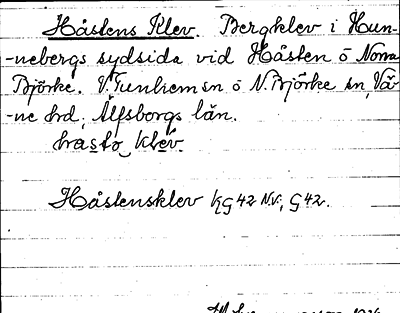 Håstens Klev. Bergklev i Hun-
-nebergs sydsida vid Håsten ö Norra
Björke. V. Tunhem sn ö N. Björke sn, Vä-
-ne hrd, Älfsborgs län.
hrasto klev
Håstensklev KG 42 N.V., G 42.